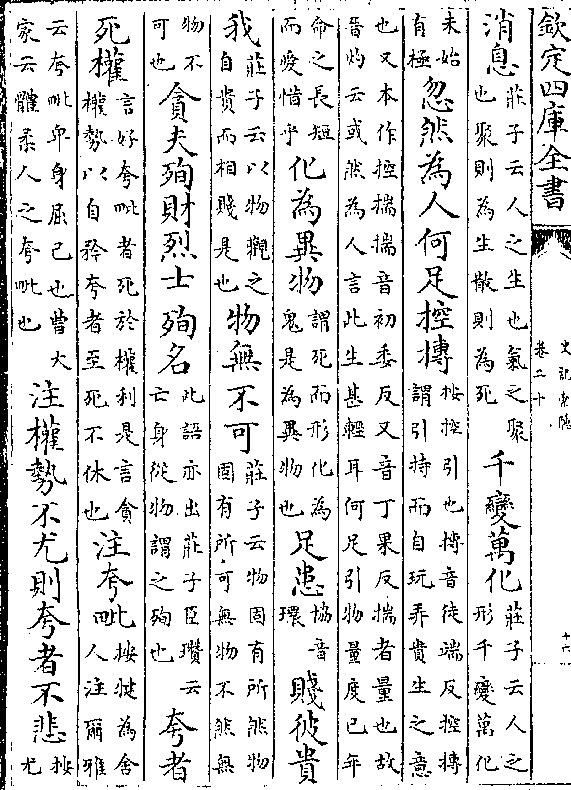 欽定四庫全書
史記索隱
卷二十
十六
消息莊子云人之生也氣之聚也聚則為生散則為死千變萬化莊子云人之形千變萬化
未始有極忽然為人何足控摶按控引也摶音徒端反控摶謂引持而自玩弄貴生之意
也又本作控揣揣音初委反又音丁果反揣者量也故晉灼云或然為人言此生甚輕耳何足引物量度已年
命之長短而愛惜乎化為異物謂死而形化為鬼是為異物也足患協音環賤彼貴
我莊子云以物觀之自貴而相賤是也物無不可莊子云物固有所然物固有所可無物不然無
物不可也貪夫殉財烈士殉名此語亦出莊子臣瓚云亡身從物謂之殉也夸者
死權言好夸毗者死於權利是言貪權勢以自矜夸者至死不休也注夸毗按犍為舍人注爾雅
云夸毗卑身屈己也曹大家云體柔人之夸毗也注權勢不尤則夸者不悲按尤